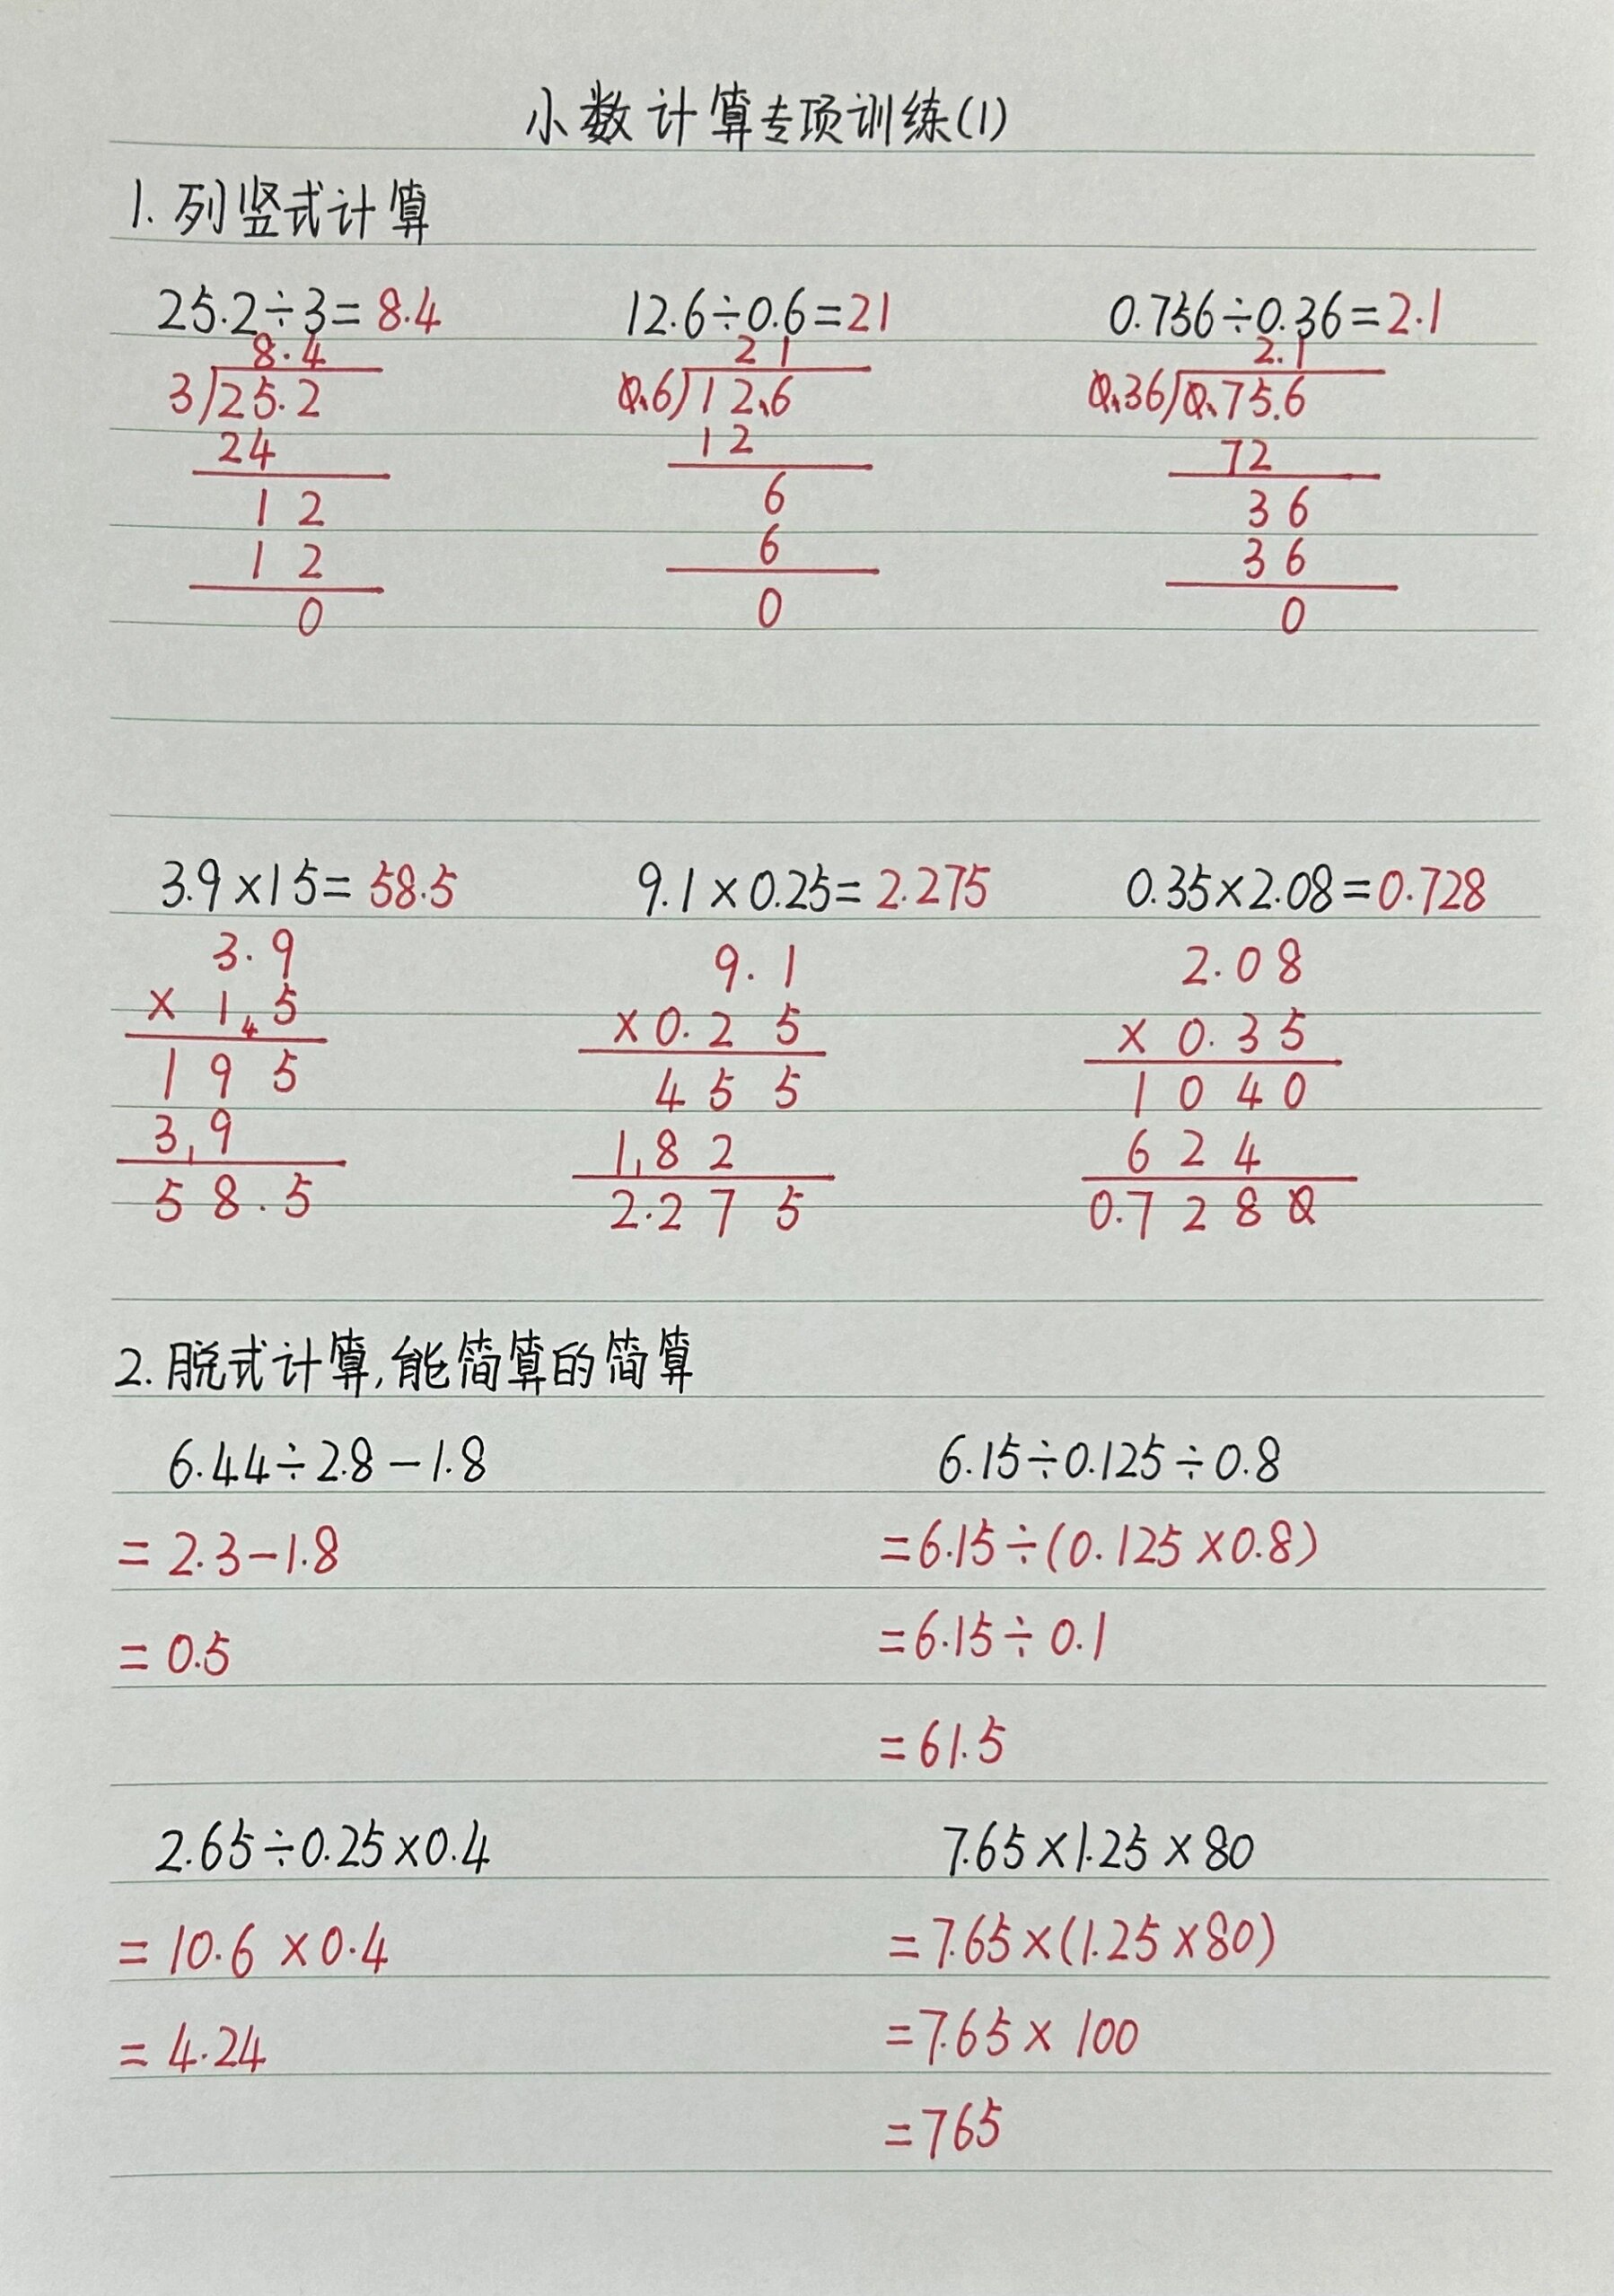 小数计算专项训练(1)
1. 列竖式计算
25.2÷3=8.4 12.6÷0.6=21 0.756÷0.36=2.1
8.4 21 2.1
3)25.2 0.6)12.6 0.36)0.75.6
24 12 72
12 6 36
12 6 36
0 0 0
3.9×15=58.5 9.1×0.25=2.275 0.35×2.08=0.728
3.9 9.1 2.08
×1 5 ×0.25 ×0.35
4
195 455 1040
3 9 1 82 624
1 1
58.5 2.275 0.7280
2. 脱式计算,能简算的简算
6.44÷2.8-1.8 6.15÷0.125÷0.8
=2.3-1.8 =6.15÷(0.125×0.8)
=0.5 =6.15÷0.1
=61.5
2.65÷0.25×0.4 7.65×1.25×80
=10.6×0.4 =7.65×(1.25×80)
=4.24 =7.65×100
=765